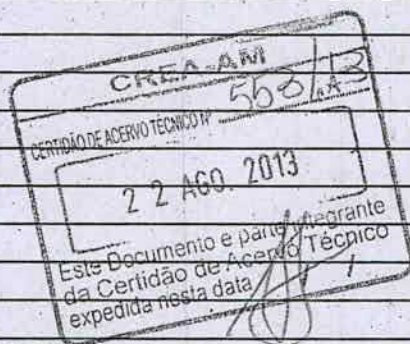 CREA-AM
CERTIDÃO DE ACERVO TÉCNICO Nº 558/13
22 AGO. 2013
Este Documento e parte integrante
da Certidão de Acervo Técnico
expedida nesta data